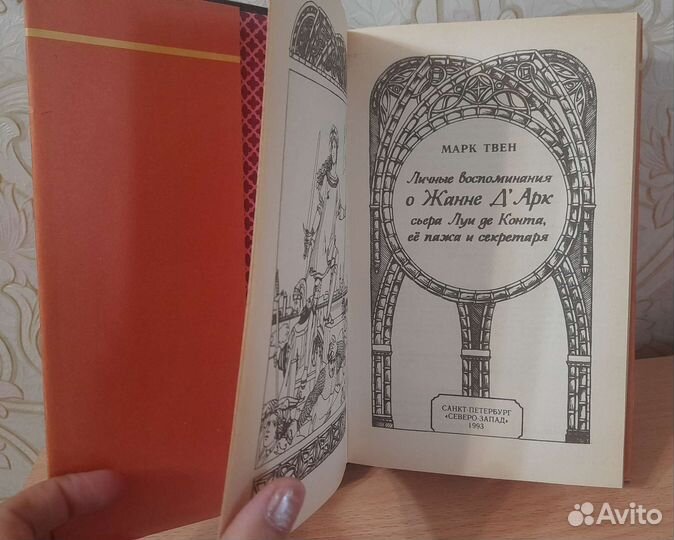 МАРК ТВЕН
Личные воспоминания
о Жанне Д'Арк
сьера Луи де Конта,
её пажа и секретаря
САНКТ-ПЕТЕРБУРГ
«СЕВЕРО-ЗАПАД»
1993
Avito